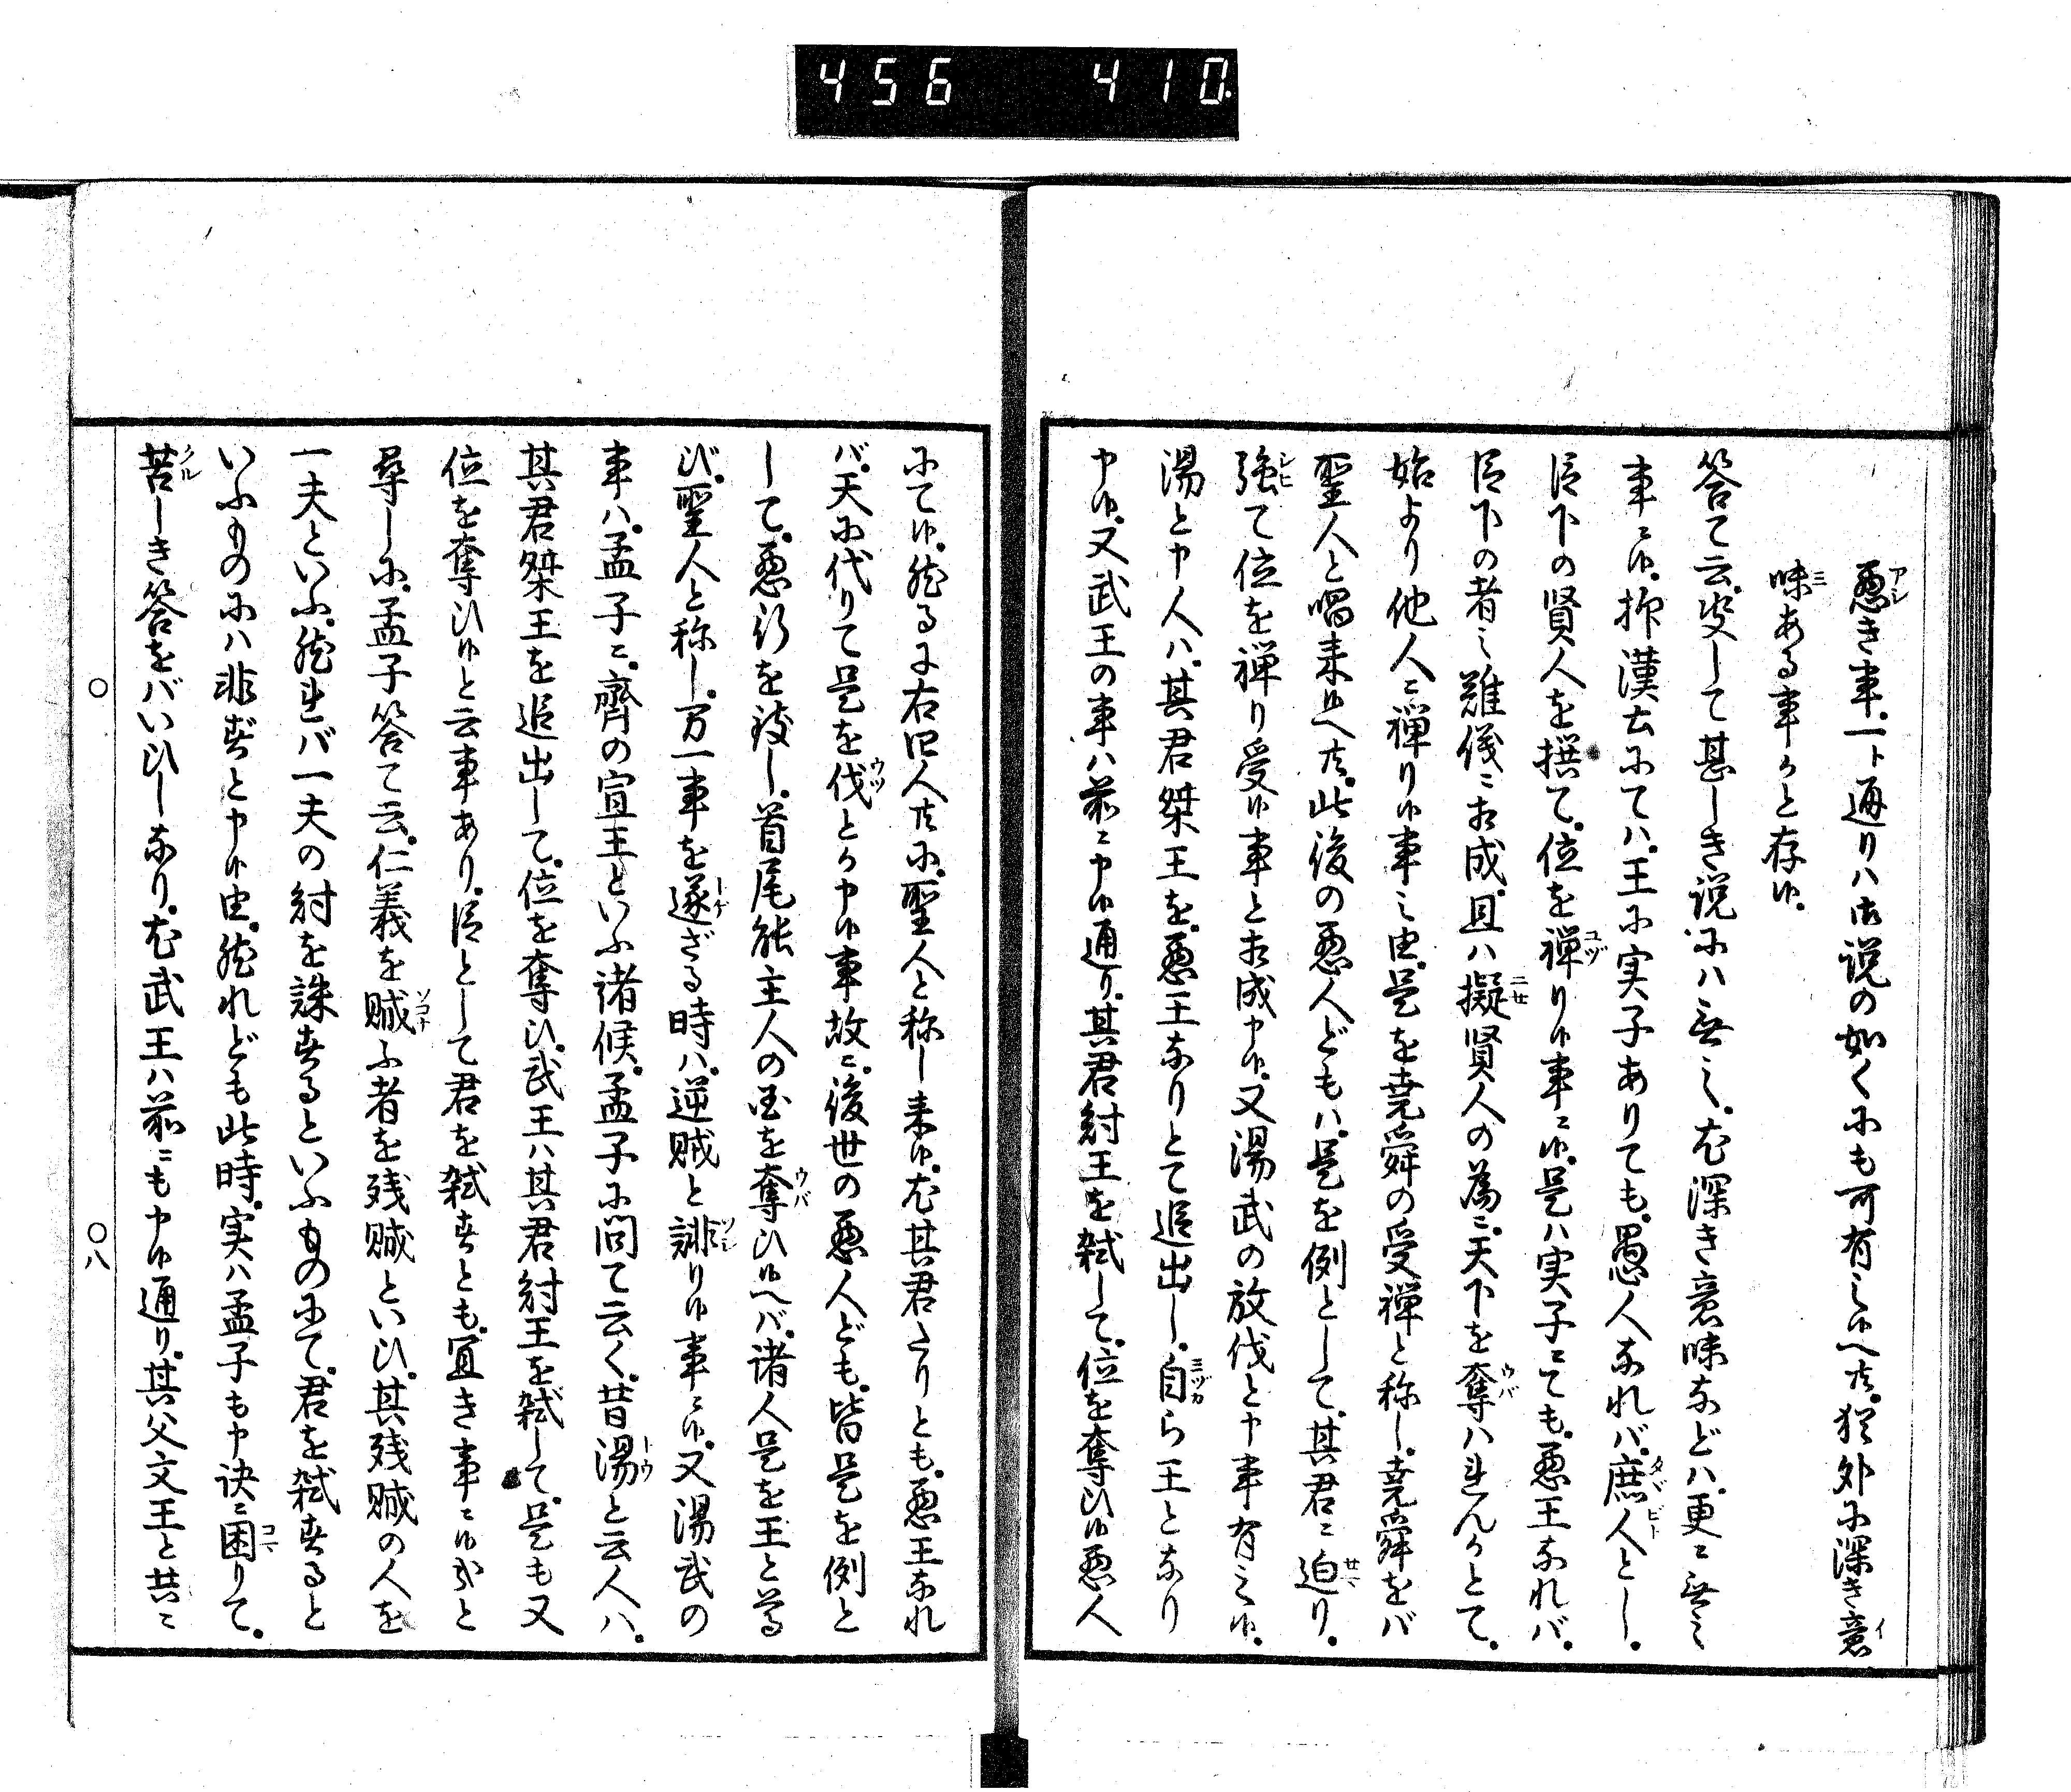 456 410.
悪き事。一ト通リハ御説の如くにも可有之候へ共。猶外に深き意
味ある事かと存候。
答て云。決して甚しき説にハ無之。尤深き意味などハ。更ニ無之
事ニ候。抑漢土にてハ。王に実子ありても。愚人なれバ。庶人とし。
臣下の賢人を撰て。位を禅り候事ニ候。是ハ実子にても。悪王なれバ。
臣下の者之難儀ニ相成。且ハ擬賢人の為ニ。天下を奪ハれんかとて。
始より他人ニ禅り候事之由。是を堯舜の受禅と称し。堯舜をバ
聖人と唱来候へ共。此後の悪人どもハ。是を例として。其君ニ迫り。
強て位を禅り受候事と相成申候。又湯武の放伐と申事有之候。
湯と申人ハ。其君桀王を。悪王なりとて追出し。自ら王となり
申候。又武王の事ハ前ニ申候通り。其君紂王を弑して。位を奪ひ候悪人
にて候。然るに右四人共に。聖人と称し来候。尤其君たりとも。悪王なれ
バ。天に代りて是を伐とか申候事故ニ。後世の悪人ども。皆是を例と
して。悪行を致し。首尾能主人の国を奪ひ候へバ。諸人是を王と尊
び。聖人と称し。万一事を遂ざる時ハ。逆賊と誹り候事ニ候。又湯武の
事ハ。孟子ニ。齊の宣王といふ諸候。孟子に問て云く。昔湯と云人ハ。
其君桀王を追出して。位を奪ひ。武王ハ其君紂王を弑して。是も又
位を奪ひ候と云事あり。臣として君を弑すとも。宜き事ニ候哉と
尋しに。孟子答て云。仁義を賊ふ者を残賊といひ。其残賊の人を
一夫といふ。然れバ一夫の紂を誅するといふものにて。君を弑すると
いふものにハ非ずと申候由。然れども此時。実ハ孟子も申訣ニ困りて。
苦しき答をバいひしなり。尤武王ハ前ニも申候通り。其父文王と共ニ
〇
〇八